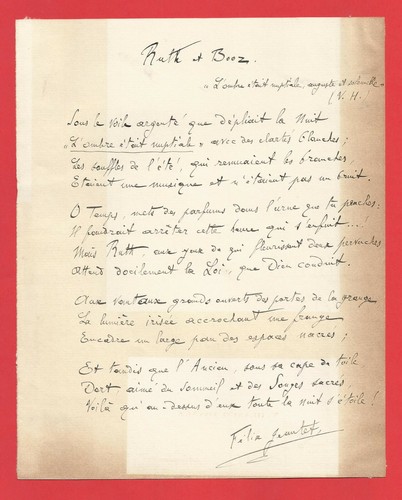 Ruth et Booz.
"L'ombre était nuptiale, auguste et solennelle"
(V. H.
Sous le voile argenté que déploiait la Nuit
"L'ombre était nuptiale" avec des clartés blanches;
Les souffles de l'été, qui remuaient les branches,
Étaient une musique et n'étaient pas un bruit.
O Temps, mets des parfums dans l'urne que tu penches:
Il faudrait arrêter cette heure qui s'enfuit...!
Mais Ruth, aux yeux de qui fleurissent deux pervenches
Attend docilement la Loi, que Dieu conduit.
Aux vantaux grands ouverts des portes de la grange
La lumière irisée accrochant une frange
Encadre un large pan des espaces nacrés;
Et tandis que l'Ancien, sous sa cape de toile
Dort aimé du Sommeil et des Songes sacrés,
Voilà qu'au-dessus d'eux toute la nuit s'étoile!
Félix Jeantet